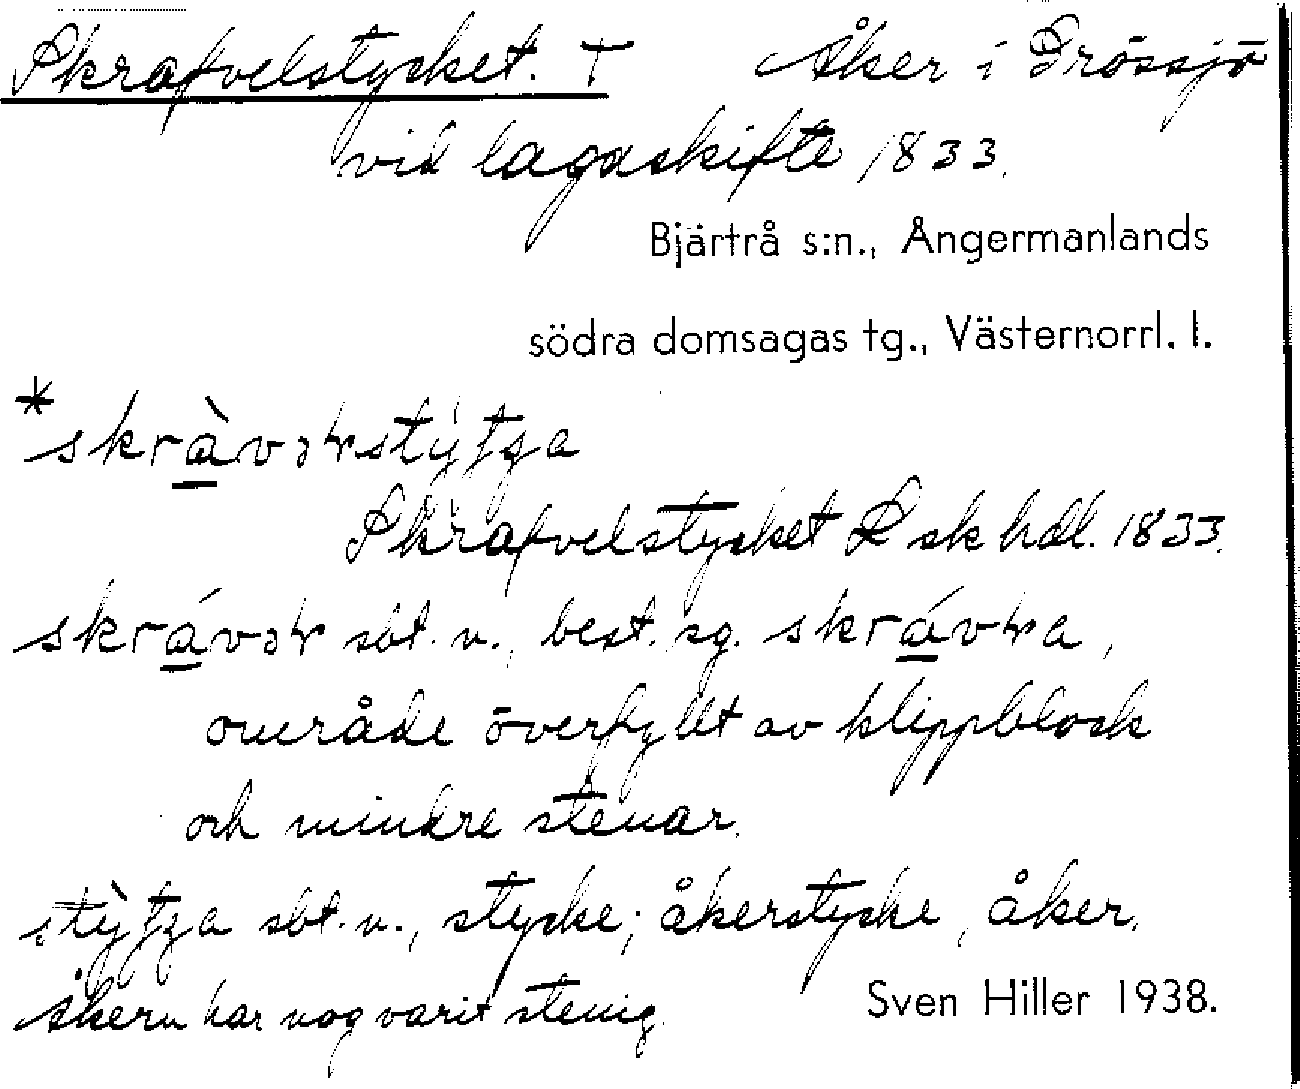 Skrafvelstycket. † Åker i Grössjö
vid lagaskifte 1833.
Bjärtrå s:n., Ångermanlands
södra domsagas tg., Västernorrl. l.
Skrafvelstycket L sk hdl. 1833.
sbt. n., best. sg.
område överfyllt av klippblock
och mindre stenar.
sbt. n., stycke; åkerstycke, åker.
Åkern har nog varit stenig.
Sven Hiller 1938.